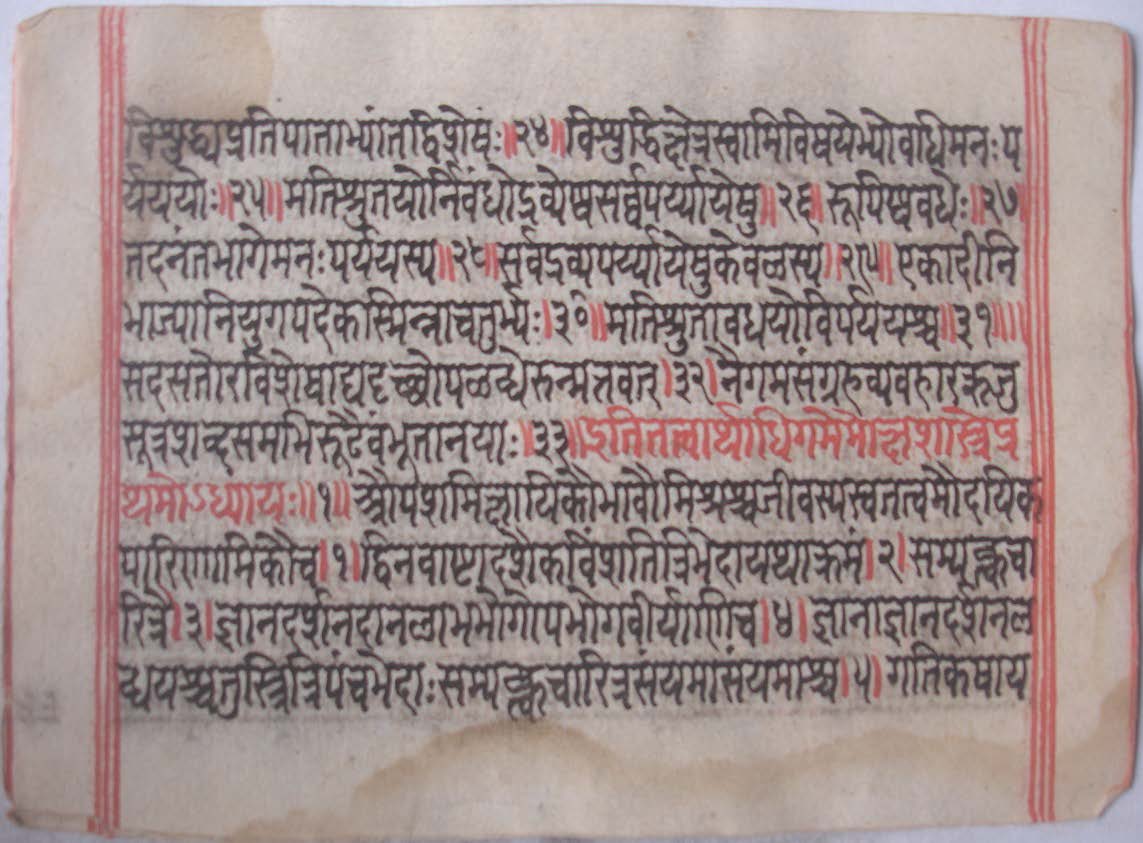 विशुद्ध्यप्रतिपाताभ्यांतद्विशेषः॥२४॥विशुद्धिक्षेत्रस्वामिविषयेभ्योवधिमनःप
र्यययोः॥२५॥मतिश्रुतयोर्निबंधोद्रव्येष्वसर्व्वपर्य्यायेषु॥२६॥रूपिष्ववधेः॥२७
तदनंतभागेमनःपर्ययस्य॥२८॥सर्वद्रव्यपर्य्यायेषुकेवळस्य॥२९॥एकादीनि
भाज्यानियुगपदेकस्मिन्नाचतुर्भ्यः।३०॥मतिश्रुतावधयोविपर्ययश्च॥३१॥
सदसतोरविशेषाद्यदृच्छोपळब्धेरुन्मत्तवत्।३२।नैगमसंग्रहव्यवहारऋजु
सूत्रशब्दसमभिरूढैवंभूतानयाः॥३३॥इतितत्वार्थाधिगमेमोक्षशास्त्रेप्र
थमोऽध्यायः॥१॥औपशमिक्षायिकौभावौमिश्रश्चजीवस्यस्वतत्वमौदयिक
पारिणामिकौच।१।द्विनवाष्टादशैकविंशतित्रिभेदायथाक्रमं।२।सम्यक्त्वचा
रित्रे।३।ज्ञानदर्शनदानलाभभोगोपभोगवीर्याणिच।४।ज्ञानाज्ञानदर्शनल
ब्धयश्चतुस्त्रित्रिपंचभेदाःसम्यक्त्वचारित्रसंयमासंयमाश्च।५।गतिकषाय